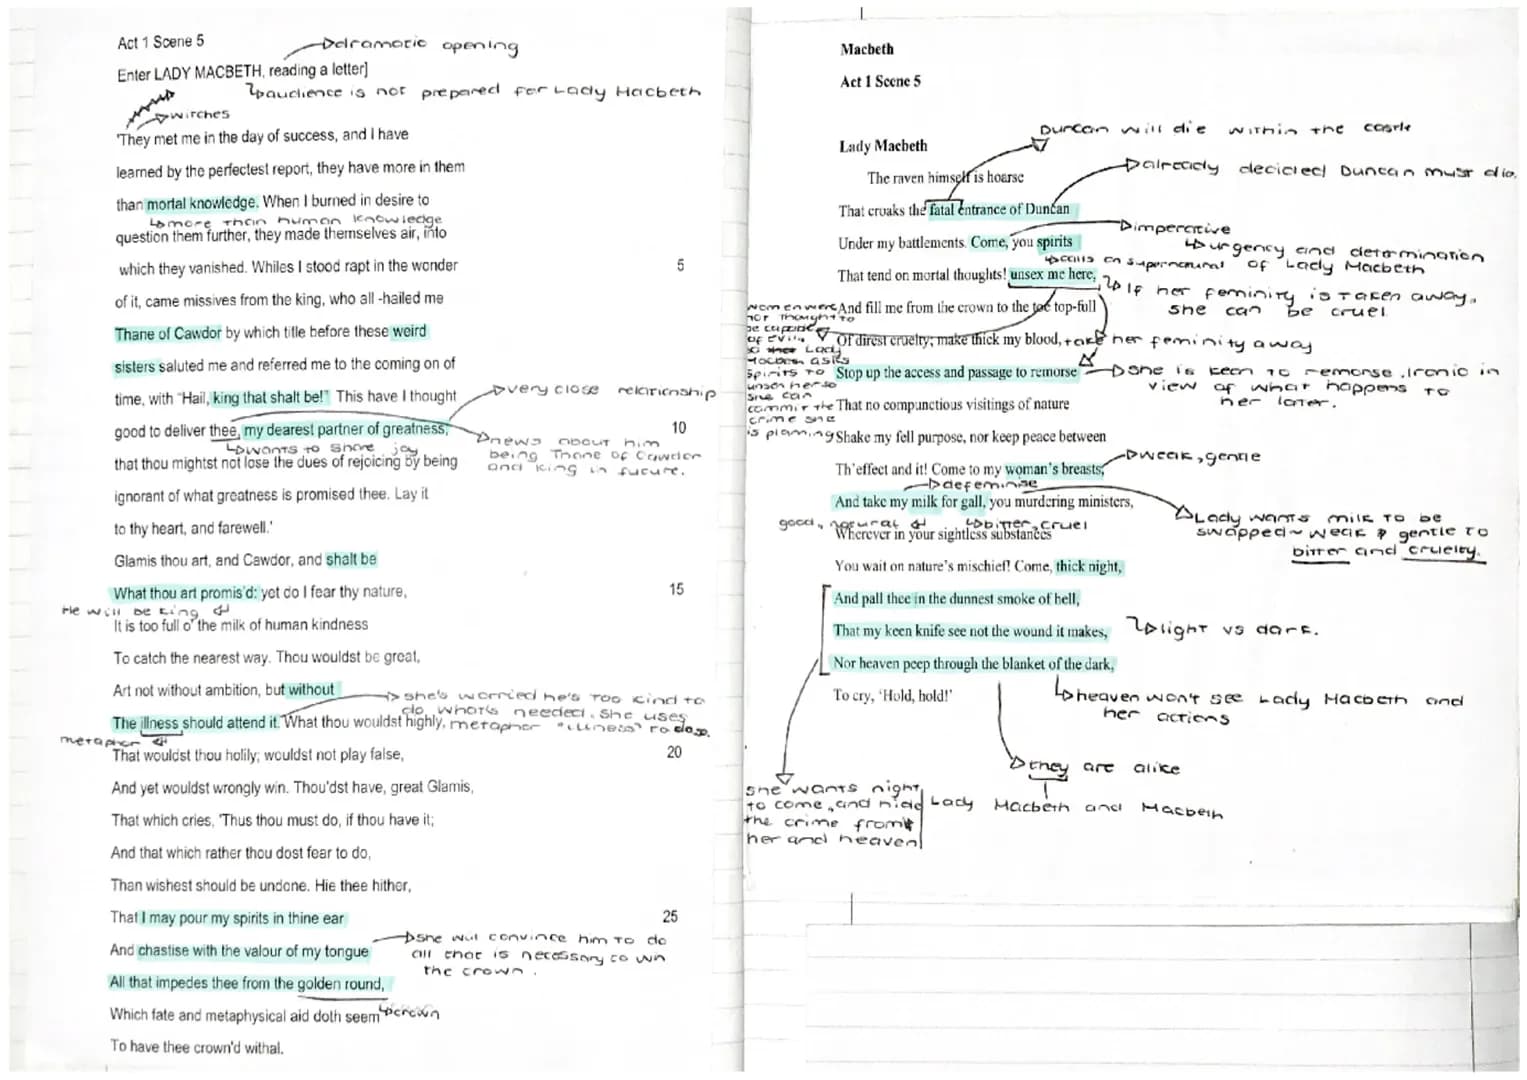 Act 1 Scene 5
dramatic opening
Enter LADY MACBETH, reading a letter]
audience is not prepared for Lady Macbeth
witches
'They met me in the day of success, and I have
learned by the perfectest report, they have more in them
than mortal knowledge. When I burned in desire to
more than human knowledge
question them further, they made themselves air, into
which they vanished. Whiles I stood rapt in the wonder 5
of it, came missives from the king, who all -hailed me
Thane of Cawdor by which title before these weird
sisters saluted me and referred me to the coming on of
time, with "Hail, king that shalt be!" This have I thought
very close relationship
good to deliver thee, my dearest partner of greatness, 10
wants to share joy
news about him being Thane of Cawdor and king in future.
that thou mightst not lose the dues of rejoicing by being
ignorant of what greatness is promised thee. Lay it
to thy heart, and farewell.'
Glamis thou art, and Cawdor, and shalt be
What thou art promis'd: yet do I fear thy nature, 15
He will be king
It is too full o' the milk of human kindness
To catch the nearest way. Thou wouldst be great,
Art not without ambition, but without
she's worried he's too kind to
do what's needed. She uses
metaphor "illness" to
The illness should attend it. What thou wouldst highly,
metaphor
That wouldst thou holily; wouldst not play false, 20
And yet wouldst wrongly win. Thou'dst have, great Glamis,
That which cries, 'Thus thou must do, if thou have it;
And that which rather thou dost fear to do,
Than wishest should be undone. Hie thee hither,
That I may pour my spirits in thine ear 25
And chastise with the valour of my tongue
she will convince him to do
all that is necessary to win
the crown.
All that impedes thee from the golden round,
crown
Which fate and metaphysical aid doth seem
To have thee crown'd withal.
Macbeth
Act 1 Scene 5
Duncan will die within the castle
Lady Macbeth
already decided Duncan must die.
The raven himself is hoarse
That croaks the fatal entrance of Duncan
imperative
urgency and determination
of Lady Macbeth
Under my battlements. Come, you spirits
calls on supernatural
That tend on mortal thoughts! unsex me here,
If her feminity is taken away,
she can be cruel
And fill me from the crown to the toe top-full
women were
not thought to
be capable
of evil, so
Lady
Macbeth asks
spirits to
unsex her so
she can
commit the
crime she
is planning
Of direst cruelty; make thick my blood,
take her feminity away
Stop up the access and passage to remorse
she is keen to remorse. Ironic in
view of what happens to
her later.
That no compunctious visitings of nature
Shake my fell purpose, nor keep peace between
Th'effect and it! Come to my woman's breasts,
weak, gentle
defeminise
And take my milk for gall, you murdering ministers,
good, natural
bitter, cruel
Lady wants milk to be
swapped~ weak & gentle to
bitter and cruelty.
Wherever in your sightless substances
You wait on nature's mischief! Come, thick night,
And pall thee in the dunnest smoke of hell,
That my keen knife see not the wound it makes,
light vs dark.
Nor heaven peep through the blanket of the dark,
To cry, 'Hold, hold!'
heaven won't see Lady Macbeth and
her actions
they are alike
Lady Macbeth and Macbeth
she wants night
to come, and hide
the crime from
her and heaven